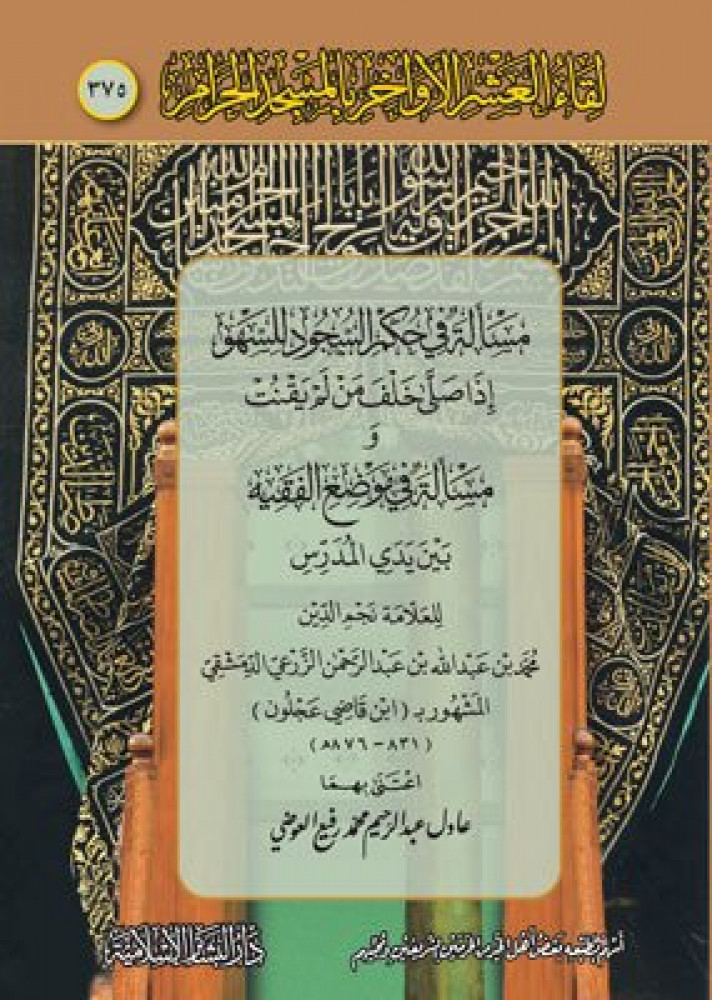 لِقَاءُ العَشْرِ الأَوَاخِرِ بِالمَسْجِدِ الحَرَامِ
٣٧٥
مَسْأَلَةٌ فِي حُكْمِ السُّجُودِ لِلسَّهْوِ
إِذَا صَلَّى خَلْفَ مَنْ لَمْ يَقْنُتْ
وَ
مَسْأَلَةٌ فِي مَوْضِعِ الفَقِيهِ
بَيْنَ يَدَيِ المُدَرِّسِ
لِلعَلَّامَة نَجْمِ الدِّيْن
مُحَمَّد بْن عَبْدالله بْن عَبْدالرَّحْمٰن الزَّرْعِيّ الدِّمَشْقِيّ
المَشْهُور بـ ( ابْن قَاضِي عَجْلُون )
( ٨٣١ - ٨٧٦هـ )
اعْتَنَى بِهِمَا
عادل عبد الرحيم محمد رفيع العوضي
أسهم بطبعه بعض أهل الخير من الحرمين الشريفين ومحبيهم
دَارُ البَشَائِرِ الإِسْلَامِيَّة